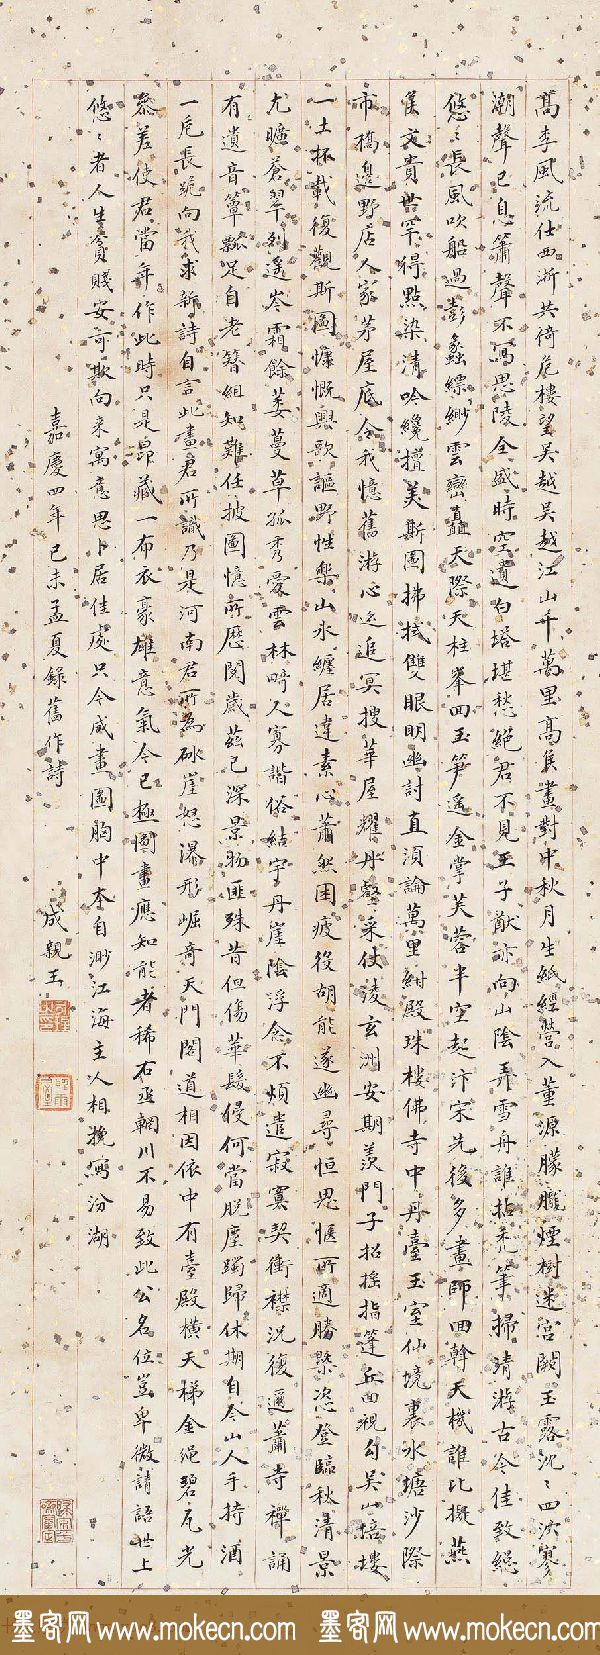 髙李風流仕西浙共倚危樓望吳越吳江山千萬里髙侯畫對中秋月生紙經營入董源朦朧煙樹迷宮闕玉露沈〻四泬寥
潮聲已息簫聲不寫思陵全盛時空遺白塔堪愁絕君不見王子猷亦向山陰弄雪舟誰拈禿筆掃清游古今佳致總
悠〻長風吹船過彭蠡縹緲雲巒矗天際天柱峯回玉笋遙金掌芙蓉半空起汴宋先後多畫師回斡天機誰比擬燕
侯文貴世罕得點染清吟纔擅美斯圖拂拭雙眼明幽討直須論萬里紺殿珠樓佛寺中丹臺玉室仙境裏水塘沙際
市橋邊野店人家茅屋底令我憶舊游心迹追冥搜華屋耀彤壑采仗淩玄洲安期羨門子招搖指蓬丘面視勾吳山培塿
一土抔載復觀斯圖慷慨興歌謳野性樂山水纏居違素心蕭然困疲役胡能遂幽尋恒思愜所適勝槩恣登臨秋清景
尤曠蒼翠列遙岑霜餘萎蔓草孤秀愛雲林時人寡諧俗結宇丹崖陰浮念不煩遣寂寞契衝襟況復邇蕭寺禪誦
有遺音簞瓢足自老簪組知難任披圖憶所歷閱歲茲已深景物匪殊昔但傷華髮侵何當脫塵躅歸休期自今山人手持酒
一卮長跪向我求新詩自言此畫君所識乃是河南君所為砅崖怒瀑形崛奇天門閣道相因依中有臺殿橫天梯金繩碧瓦光
參差使君當年作此時只是昂藏一布衣豪雄意氣今已極圖畫應知能者稀右丞輞川不易致此公名位豈卑微請語世上
悠〻者人生貧賤安可欺向來寓意思卜居佳處只今成畫圖胸中本自渺江海主人相挽寫汾湖
嘉慶四年己未孟夏錄舊作詩 成親王
墨客网 www.mokecn.com 墨客网 www.mokecn.com